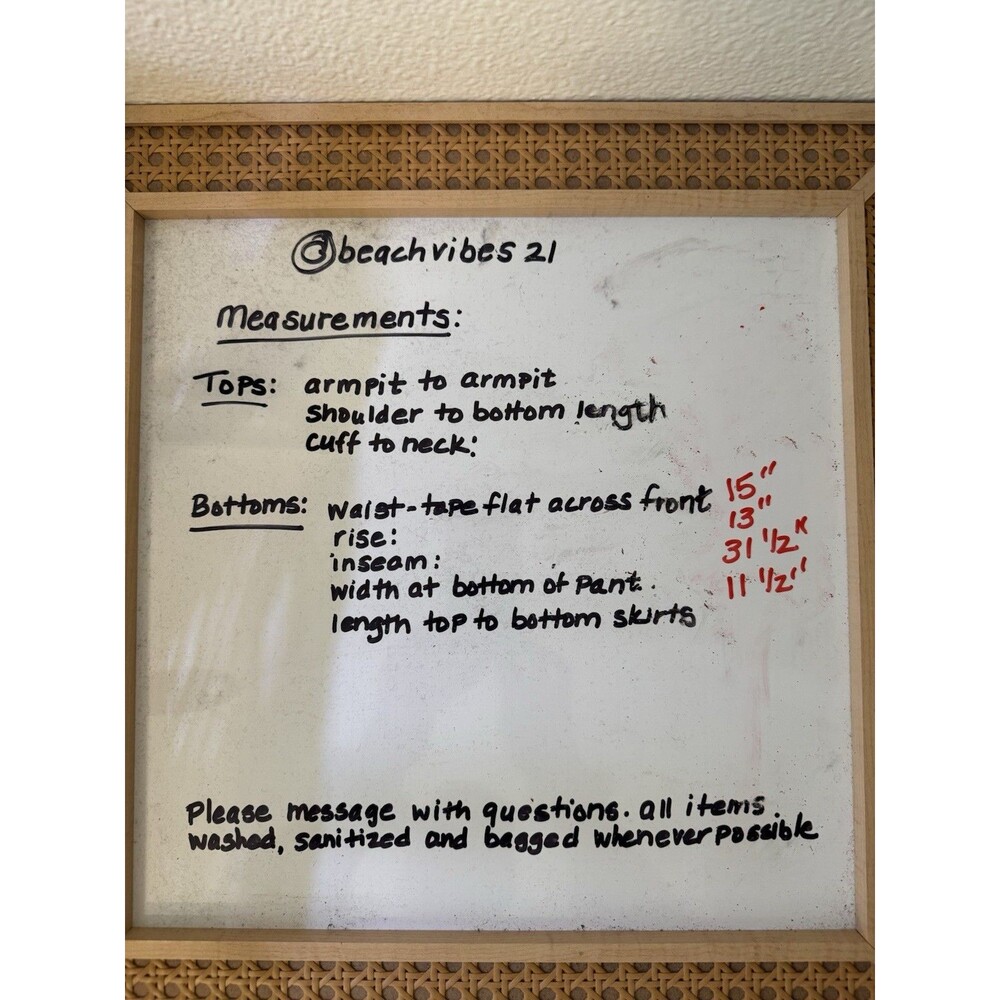 @beachvibes 21
Measurements:
Tops: armpit to armpit
shoulder to bottom length
cuff to neck:
Bottoms: waist-tape flat across front 15"
rise: 13"
inseam: 31 1/2"
width at bottom of pant. 11 1/2"
length top to bottom skirts
Please message with questions. all items
washed, sanitized and bagged whenever possible